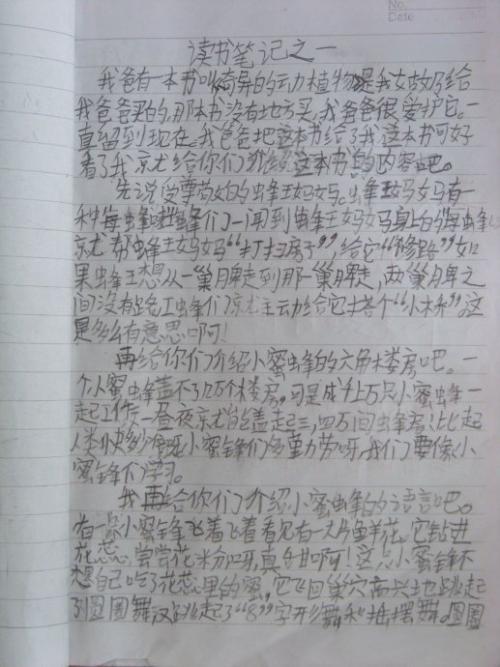 No.
Date
读书笔记之一
我爸有一本书叫奇异的动植物是我姑妈给
我爸爸买的,那本书没有地方买,我爸爸很爱护它。一
直留到现在。我爸爸把这本书给了我这本书可好
看了我就给你们介绍这本书的内容吧。
先说受尊敬的蜂王妈妈。蜂王妈妈有一
种每蜂们一闻到蜂王妈妈身上的
就帮蜂王妈妈“打扫房子”给它“修路”如
果蜂王想从一巢脾走到那一巢脾走,两巢脾之
间没有路工蜂们就主动给它搭个“小桥”。这
是多么有意思啊!
再给你们介绍小蜜蜂的六角楼房吧。一
个小蜜蜂盖不了万个楼房,可是成千上万只小蜜蜂一
起工作,一昼夜就能盖起三,四万间蜂房,比起
人类快多小蜜锋们多勤劳呀,我们要像小
蜜锋们学习。
我再给你们介绍小蜜蜂的语言吧。
有一只小蜜锋飞着飞着看见有一大片鲜花,它钻进
花蕊,尝尝花粉呀,真甘啊!这只小蜜锋不
想自己吃了花蕊里的蜜,它飞回巢穴高兴地跳起
了圆圈舞,又跳起了“8”字形舞和摇摆舞。圆圈